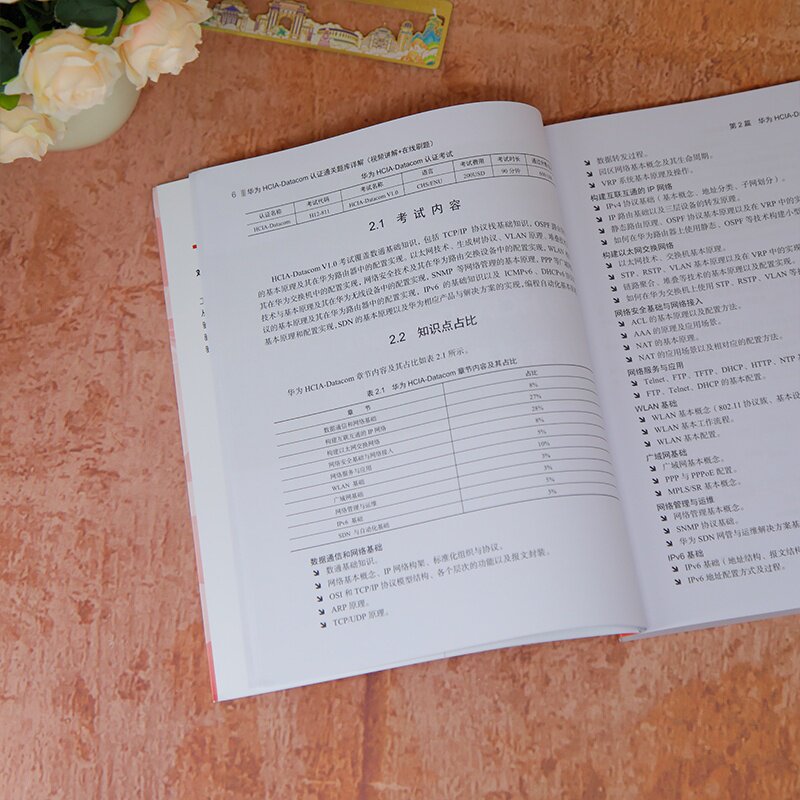 6 华为 HCIA-Datacom 认证通关题库详解（视频讲解+在线刷题）
华为 HCIA-Datacom 认证考试
认证名称 考试代码 考试名称 语言 考试费用 考试时长
HCIA-Datacom H12-811 HCIA-Datacom V1.0 CHS/ENU 200USD 90 分钟
2.1 考试内容
HCIA-Datacom V1.0 考试覆盖数通基础知识，包括 TCP/IP 协议栈基础知识，OSPF 路由
的基本原理及其在华为路由器中的配置实现，以太网技术、生成树协议、VLAN 原理、堆叠
其在华为交换机中的配置实现，网络安全技术及其在华为路由交换设备中的配置实现，WLAN
技术与基本原理及其在华为无线设备中的配置实现，SNMP 等网络管理的基本原理，PPP 等广
议的基本原理及其在华为路由器中的配置实现，IPv6 的基础知识以及 ICMPv6、DHCPv6
基本原理和配置实现，SDN 的基本原理以及华为相应产品与解决方案的实现，编程自动化基本
2.2 知识点占比
华为 HCIA-Datacom 章节内容及其占比如表 2.1 所示。
表 2.1 华为 HCIA-Datacom 章节内容及其占比
章 节 占比
数据通信和网络基础 8%
构建互联互通的 IP 网络 27%
构建以太网交换网络 28%
网络安全基础与网络接入 8%
网络服务与应用 5%
WLAN 基础 10%
广域网基础 3%
网络管理与运维 3%
IPv6 基础 5%
SDN 与自动化基础 5%
数据通信和网络基础
数通基础知识。
网络基本概念、IP 网络构架、标准化组织与协议。
OSI 和 TCP/IP 协议模型结构、各个层次的功能以及报文封装。
ARP 原理。
TCP/UDP 原理。
第 2 篇 华为 HCIA-D
数据转发过程。
园区网络基本概念及其生命周期。
VRP 系统基本原理及操作。
构建互联互通的 IP 网络
IPv4 协议基础（基本概念、地址分类、子网划分）。
IP 路由基础以及三层设备的转发原理。
静态路由原理、OSPF 协议基本原理以及在 VRP 中的实
如何在华为路由器上使用静态、OSPF 等技术构建小型
构建以太网交换网络
以太网技术、交换机基本原理。
STP、RSTP、VLAN 基本原理以及在 VRP 中的实现
链路聚合、堆叠等技术的基本原理以及配置实现。
如何在华为交换机上使用 STP、RSTP、VLAN 等
网络安全基础与网络接入
ACL 的基本原理以及配置方法。
AAA 的原理及应用场景。
NAT 的基本原理。
NAT 的应用场景以及相对应的配置方法。
网络服务与应用
Telnet、FTP、TFTP、DHCP、HTTP、NTP
FTP、Telnet、DHCP 的基本配置。
WLAN 基础
WLAN 基本概念（802.11 协议族、基本设
WLAN 基本工作流程。
WLAN 基本配置。
广域网基础
广域网基本概念。
PPP 与 PPPoE 配置。
MPLS/SR 基本概念。
网络管理与运维
网络管理基本概念。
SNMP 协议基础。
华为 SDN 网管与运维解决方案基
IPv6 基础
IPv6 基础（地址结构、报文结构
IPv6 地址配置方式及过程。